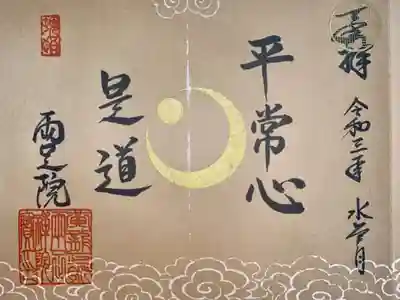 奉拝
令和三年 水無月
平常心
是道
兩足院